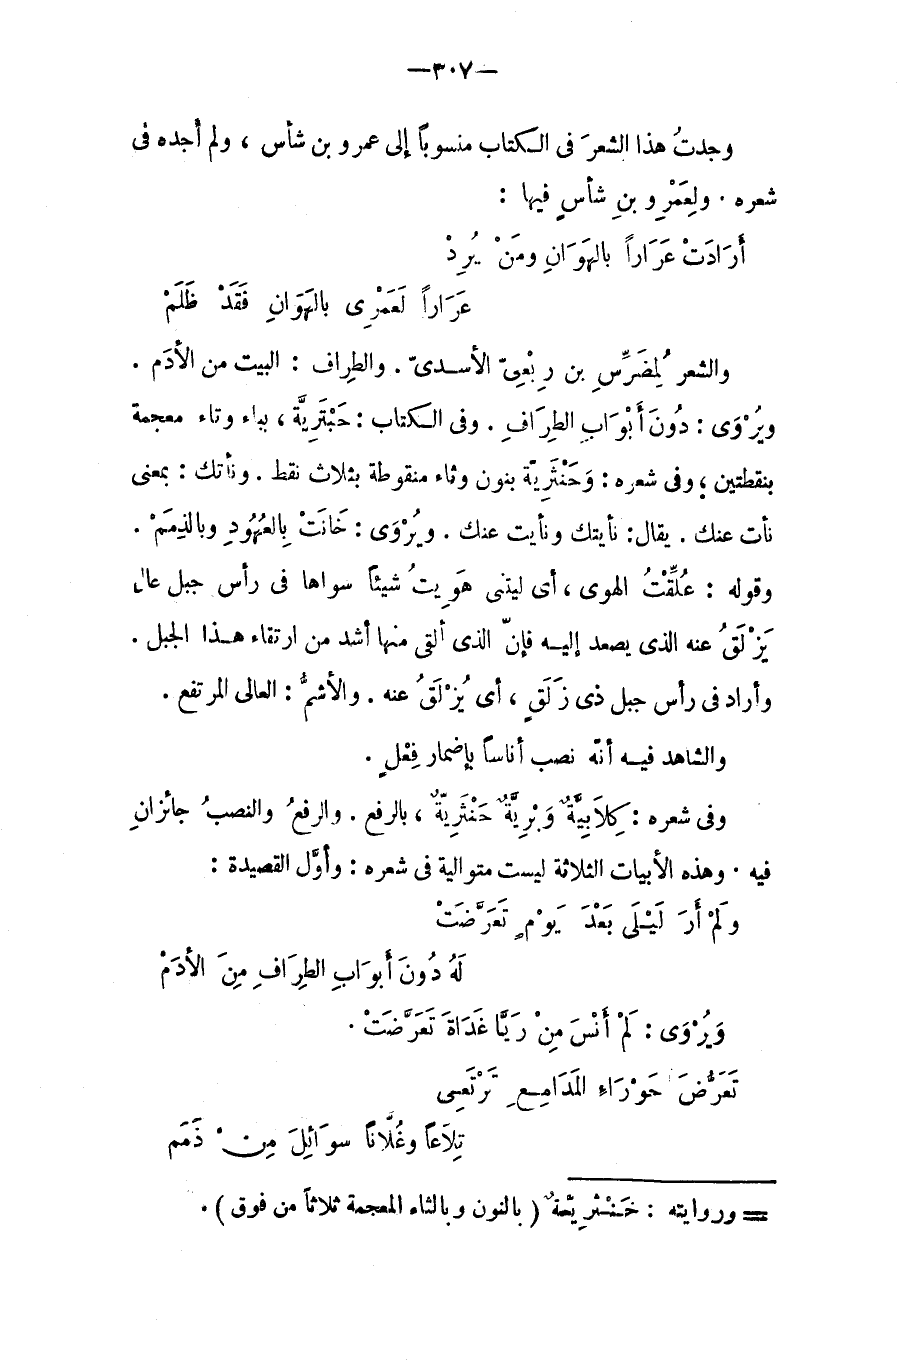 —٣٠٧—
وجدتُ هذا الشعرَ فى الكتاب منسوباً إلى عمرو بن شأس ، ولم أجده فى
شعره . ولِعَمْرِو بنِ شأسٍ فيها :
أَرَادَتْ عَرَاراً بالهَوَانِ ومَنْ يُرِدْ
عَرَاراً لَعَمْرِى بالهَوَانِ فَقَدْ ظَلَمْ
والشعر لِمُضَرِّسِ بن رِبْعِىّ الأسدىّ . والطِراف : البيت من الأدَم .
ويُرْوَى : دُونَ أَبْوَابِ الطِرَافِ . وفى الكتاب : حَبْتَرِيَّةً ، بباء وتاء معجمة
بنقطتين ؛ وفى شعره : وَحَنْثَرِيّة بنون وثاء منقوطة بثلاث نقط . ونأتك : بمعنى
نأت عنك . يقال : نأيتك ونأيت عنك . ويُرْوَى : خَانَتْ بِالعُهُودِ وبالذِمَمْ .
وقوله : عُلِّقْتُ الهوى ، أى ليتنى هَوِيتُ شيئاً سواها فى رأس جبل عالٍ
يَزْلَقُ عنه الذى يصعد إليه فإنّ الذى ألقى منها أشد من ارتقاء هذا الجبل .
وأراد فى رأس جبل ذى زَلَقٍ ، أى يُزْلَقُ عنه . والأشمُّ : العالى المرتفع .
والشاهد فيه أنّه نصب أناساً بإضمار فِعْلٍ .
وفى شعره : كِلَابِيَّةٌ وَبْرِيَّةٌ حَنْثَرِيّةٌ ، بالرفع . والرفعُ والنصبُ جائزانِ
فيه . وهذه الأبيات الثلاثة ليست متوالية فى شعره : وأوَّل القصيدة :
ولَمْ أَرَ لَيْلَى بَعْدَ يَوْمٍ تَعَرَّضَتْ
لَهُ دُونَ أَبوَابِ الطِرَافِ مِنَ الأَدَمْ
وَيُرْوَى : لَمْ أَنْسَ مِنْ رَيَّا غَدَاةَ تَعَرَّضَتْ .
تَعَرُّضَ حَوْرَاءِ المَدَامِعِ تَرْتَعِى
تِلَاعاً وغُلَّاناً سوَائِلَ مِنْ ذَمَم
= وروايته : حَنْثَرِيّةٌ ( بالنون وبالثاء المعجمة ثلاثاً من فوق ) .